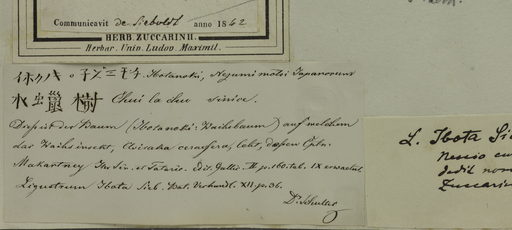 Communicavit de Siebold anno 1842
HERB. ZUCCARINII.
Herbar. Univ. Ludov. Maximil.
Ibotanoki, Nezumi motsi Japanorum
水虫蠟樹 Chui la chu sinice.
Dies ist der Baum (Ibotanoki: Waihebaum) auf welchem
das Waihs insect, cerifera, lebt, dessen Capt.
Makartney It. Sin. et Tatarie. Ed. Gallic. II p. 160. tab. IX erwaehnt.
Ligustrum Ibota Sieb. Bat. Verhandl. XII p. 36.
Dr. Schultes
L. Ibota Sie
Nescio cu
dedit nom
Zuccarin